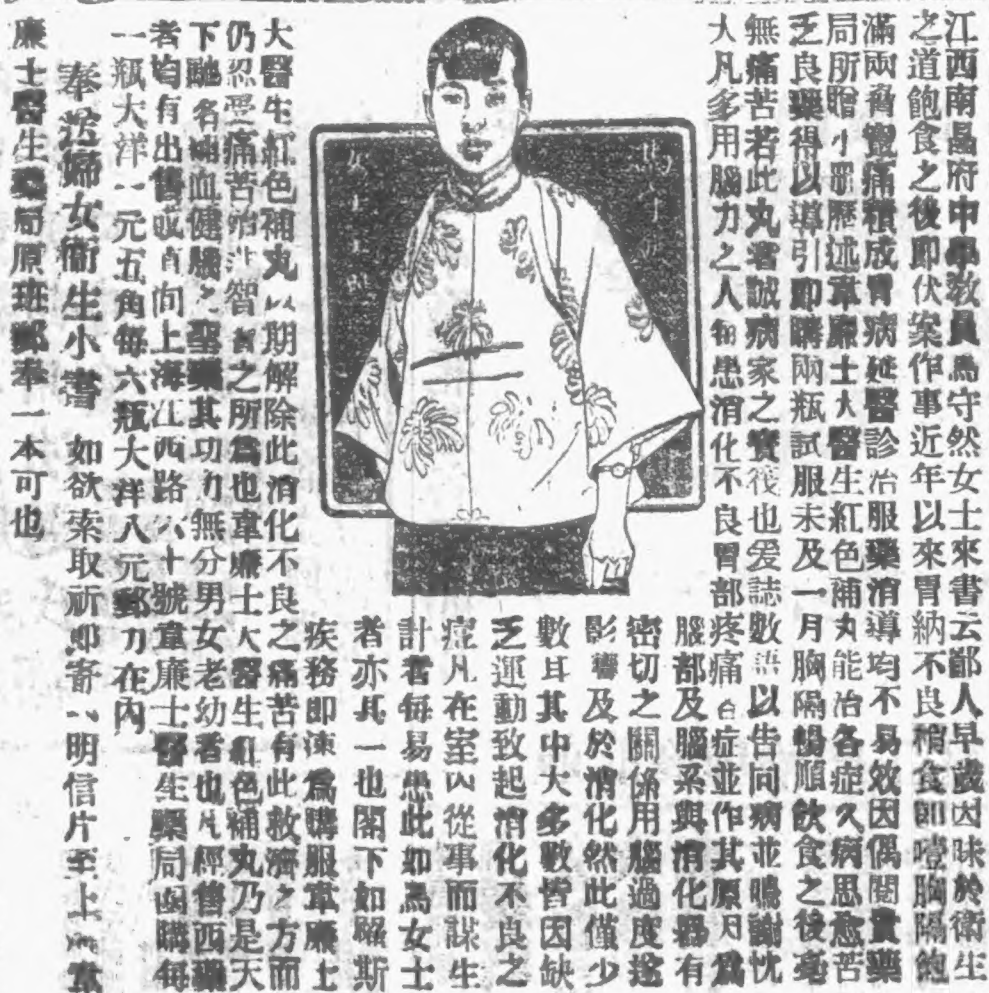 江西南昌府中學敎員馬守然女士來書云鄙人早歲因昧於衛生
之道飽食之後即伏案作事近年以來胃納不良稍食即噎胸隔飽
滿兩脅竄痛積成胃病延醫診治服藥消導均不易效因偶閱貴藥
局所贈小冊歷述韋廉士大醫生紅色補丸能治各症久病思愈苦
乏良藥得以導引即購兩瓶試服未及一月胸隔暢順飲食之後毫
無痛苦若此丸者誠病家之寶筏也爰誌數語以告同病並鳴謝忱
大凡多用腦力之人每患消化不良胃部疼痛台症並作其原因爲
腦部及腦系與消化器有
密切之關係用腦過度遂
影響及於消化然此僅少
數耳其中大多數皆因缺
乏運動致起消化不良之
症凡在室內從事而謀生
計者每易患此如馬女士
者亦其一也閣下如罹斯
疾務即速爲購服韋廉士
大醫生紅色補丸以期解除此消化不良之痛苦有此救濟之方而
仍忍受痛苦殆非智者之所爲也韋廉士大醫生紅色補丸乃是天
下馳名補血健腦之聖藥其功力無分男女老幼者也凡經售西藥
者均有出售或直向上海江西路六十號韋廉士醫生藥局函購每
一瓶大洋一元五角每六瓶大洋八元郵力在內
奉送婦女衛生小書 如欲索取祈即寄一明信片至上海韋
廉士醫生藥局原班郵奉一本可也